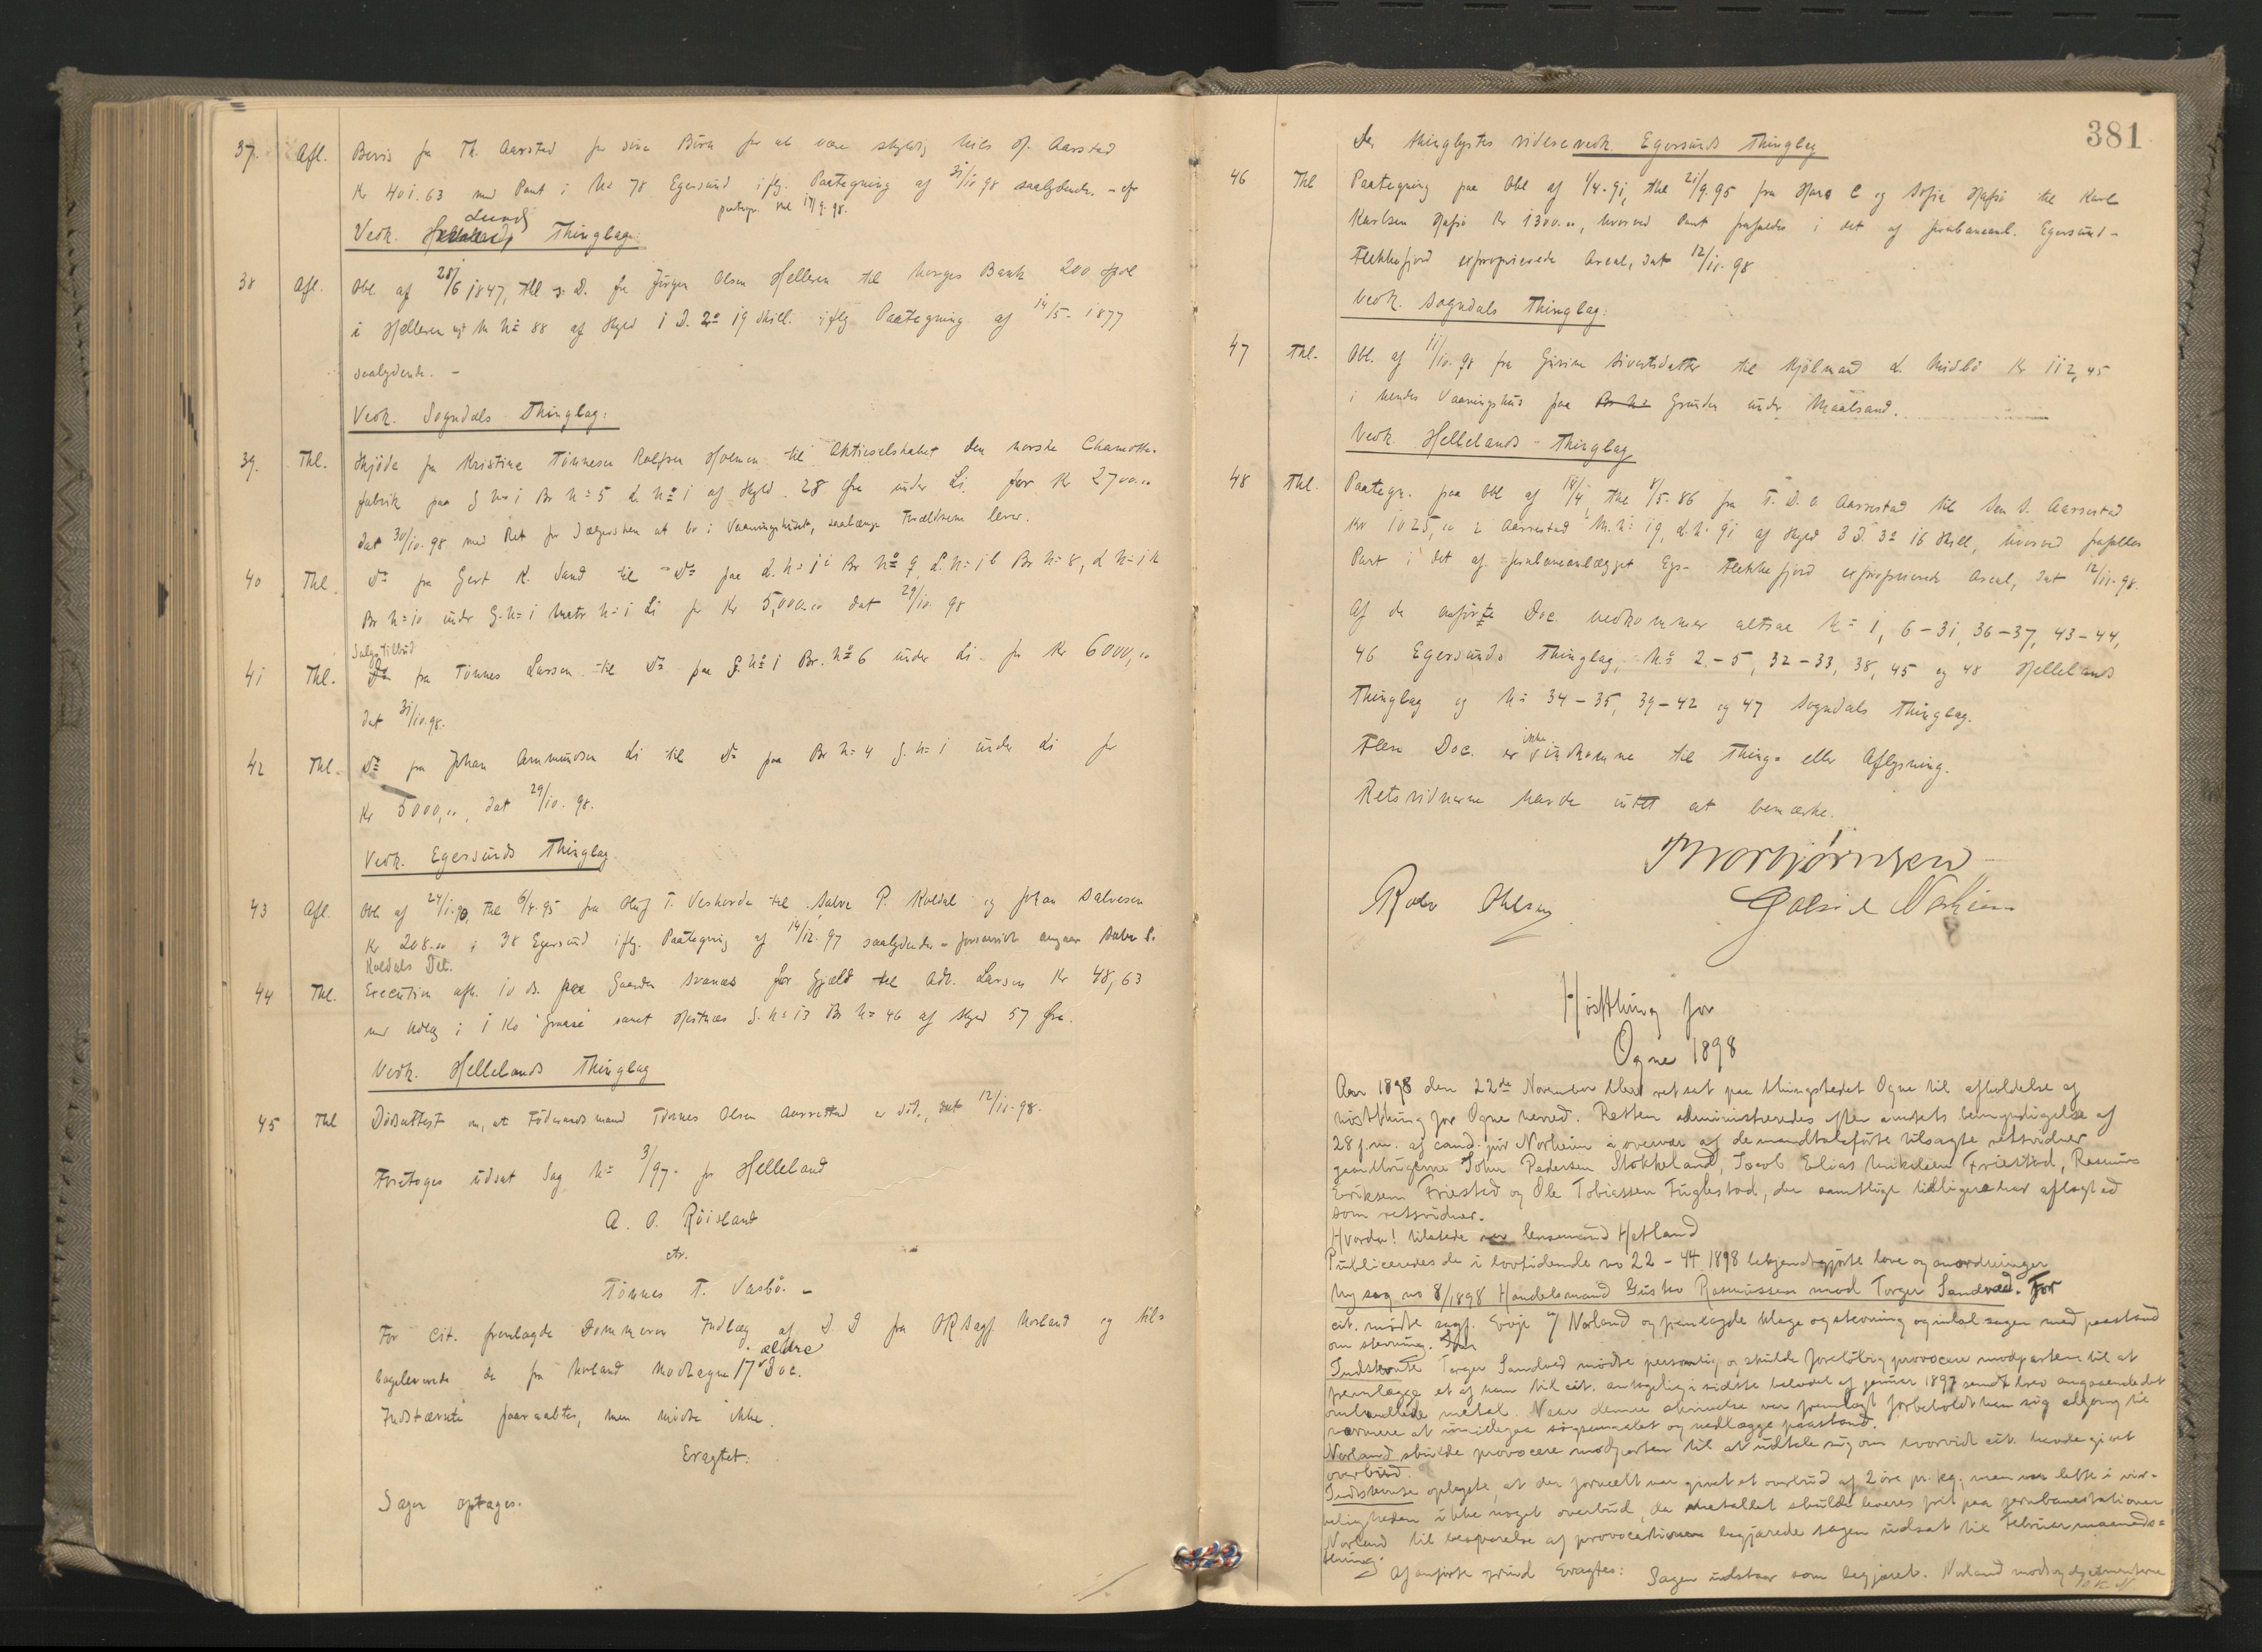 37. Afl. Bevis fra Th. Aarstad for sine Börn for at være skyldig Nils O. Aarstad
Kr 401.63 med Pant i No 78 Egersund iflg. Paategning af 31/10 98 saalydende. - cfr
paategn. thl 17/9 98.
Vedk. Lunds Thinglag:
38 Afl. Obl. af 28/6 1847, thl s. D. fra Jörgen Olsen Helleren til Norges Bank 200 Spdl
i Helleren M No 88 af Skyld 1 D. 2 o 19 skill. iflg Paategning af 14/5 - 1877
saalydende. -
Vedk. Sogndals Thinglag:
39. Thl. Skjöde fra Kristine Tönnesen Rolfsen Holmen til Aktieselskabet den norske Chamotte-
fabrik paa G No 1 Br No 5 L. No 1 af Skyld. 28 Øre under Li for Kr 2700.00
dat 30/10. 98 med Ret for Sælgersken at bo i Vaaningshuset, saalænge Forældrene lever.
40 Thl. Do fra Gert K. Sand til Do paa L. No 1 i Br No 9, L. No 1 b Br No 8, L No 1 k
Br No 10 under G. No 1 Matr No 1 Li for Kr 5,000.00 dat 29/10. 98
Salgstilbud
41 Thl. Do fra Tönnes Larsen til Do paa G. No 1 Br. No 6 under Li for Kr 6000,00
dat 31/10. 98.
42 Thl. Do fra Johan Ammundsen Li til Do paa Br No 4 G. No 1 under Li for
Kr 5000,00, dat 29/10. 98.
Vedk. Egersunds Thinglag.
43 Afl. Obl. af 24/1.90, Thl 6/4.95 fra Oluf T. Veshovda til Salve P. Koldal og Johan Salvesen
Kr 208.00 i 38 Egersund iflg. Paategning af 14/12. 97 saalydende - forsaavidt angaar Salve P.
Koldals Del.
44 Thl. Execution afh. 10 ds. paa Gaarden Svanæs for Gjæld til Adv. Larsen Kr 48,63
med Udlæg i 1 Ko "Graae" samt Hestnæs G. No 13 Br No 46 af Skyld 57 Øre.
Vedk. Hellelands Thinglag
45 Thl Dödsattest om, at Föderaadsmand Tönnes Olsen Aarrestad er död, dat 12/11. 98.
Foretoges udsat Sag No 3/97. for Helleland
A. O. Röisland
ctr.
Tönnes T. Vasbö. -
For Cit. fremlagde Dommeren Indlæg af D. D fra ORSagf Norland og til-
bageleverede de fra Norland modtagne 17 ældre Doc.
Indstævnte paaraabtes, men mödte ikke.
Eragtet:
Sagen optages.
381
Der thinglystes videre vedk. Egersunds Thinglag
46 Thl Paategning paa Obl af 1/4. 91, thl 21/9. 95 fra Hans C og Sofie Hafsö til Karl
Karlsen Hafsö Kr 1300.00, hvorved Pant frafaldes i det af Jernbaneanl. Egersund-
Flekkefjord exproprierede Areal, dat 12/11. 98
Vedk. Sogndals Thinglag:
47 Thl. Obl. af 11/10. 98 fra Gurine Sivertsdatter til Hjölmand L Midbö Kr 112,45
i hendes Vaaningshus paa Br No Grunden under Maalsand.
Vedk. Hellelands-Thinglag
48 Thl. Paategn. paa Obl af 14/4 thl 8/5. 86 fra T. D. O. Aarrestad til Sen S. Aarrestad
Kr 1025,00 i Aarrestad M. No 19, L. No 91 af Skyld 3 D. 3 o 16 Skill, hvorved frafaldes
Pant i det af Jernbaneanlægget Egs-Flekkefjord exproprierede Areal, dat 12/11. 98.
Af de anförte Doc. vedkommer altsaa No 1, 6-31, 36-37, 43-44,
46 Egersunds Thinglag, No 2-5, 32-33, 38, 45 og 48 Hellelands
Thinglag og No 34-35, 39-42 og 47 Sogndals Thinglag.
Flere Doc. er ikke indkomne til Thing- eller Aflysning.
Retsvidnerne havde intet at bemærke.
Thorbjörnsen
Rolv Ohlsen Gabriel Norheim
Höstthing for
Ogne 1898
Aar 1898 den 22de November blev ret sat paa thingstedet Ogne til afholdelse af
höstthing for Ogne herred. Retten administreredes efter amtets bemyndigelse af
28 f.m. af cand. jur Norheim i overvær af de mandtalsförte tilsagte retsvidner
gaardbrugerne John Pedersen Stokkeland, Jacob Elias Mikalsen Friestad, Rasmus
Eriksen Friestad og Ole Tobiassen Fuglestad, der samtlige tidligere har aflagt ed
som retsvidner.
Hvorda! tilstede var lensmand Hetland
Publiceredes de i lovtidende no 22 - 44 1898 bekjendtgjorte love og anordninger
Ny sag no 8/1898 Handelsmand Gustav Rasmussen mod Torger Sandved. For
cit. mödte sagf. Evje f/ Norland og fremlagde klage og stevning og indlod sagen med paastand
om stevning.
Indstevnte Torger Sandved mödte personlig og skulde foreløbig provocere modparten til at
fremlægge et af ham til cit. antagelig i sidste halvdel af januar 1897 sendt brev angaaende det
omhandlede metal. Naar denne skrivelse var fremlagt forbeholdt han sig adgang til
nærmere at imödegaa sögsmaalet og nedlægge paastand.
Norland skulde provocere modparten til at udtale sig om hvorvidt cit. havde givet
overbud.
Indstevnte oplyste, at der forvelt var givet et overbud af 2 öre pr. kg; men var dette i vir-
keligheden ikke noget overbud, da metallet skulde leveres frit paa jernbanestationen
Norland til besvarelse af provocationen begjærede sagen udsat til Februar maaneds-
thing.
Af anförte grund Eragtes: Sagen udstaar som begjæret. Norland modtog documenterne